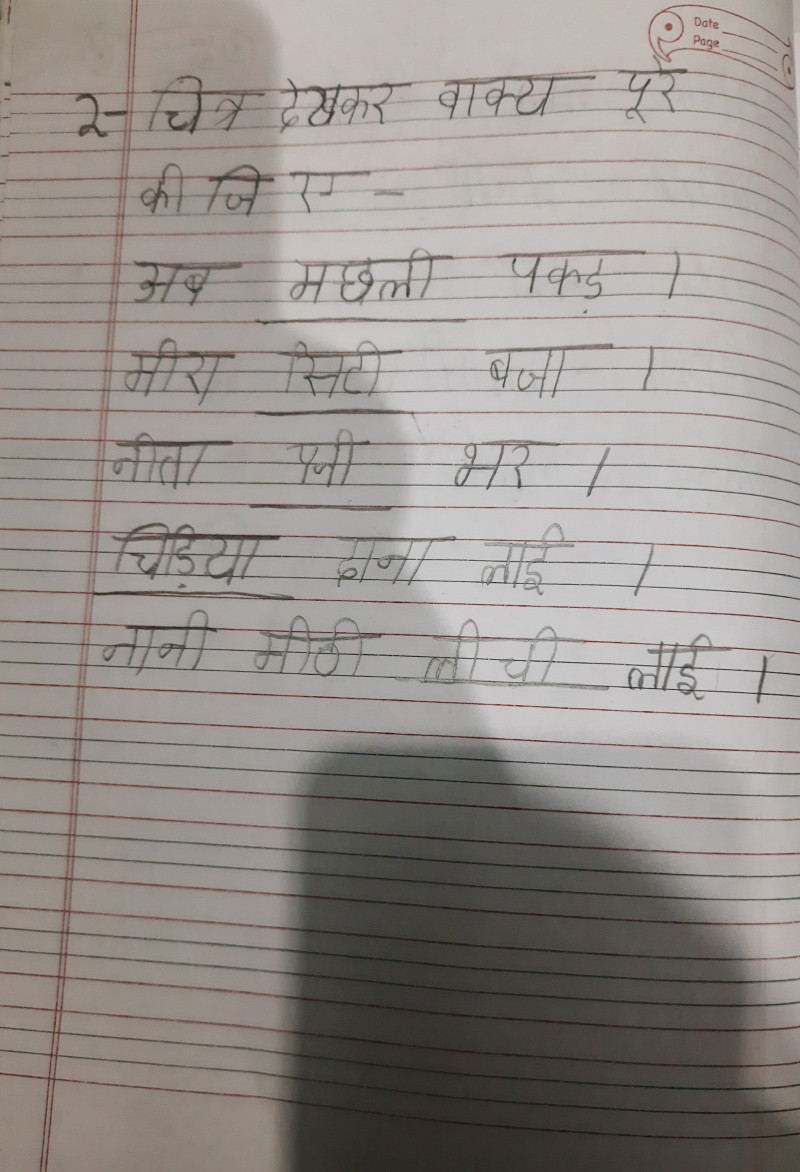 Date
Page
२- चित्र देखकर वाक्य पूरे
की जि ए -
अब मछली पकड़ ।
मीरा सिटी बजा ।
नीता पनी भर ।
चिड़िया दाना लाई ।
नानी मीठी लीची लाई ।